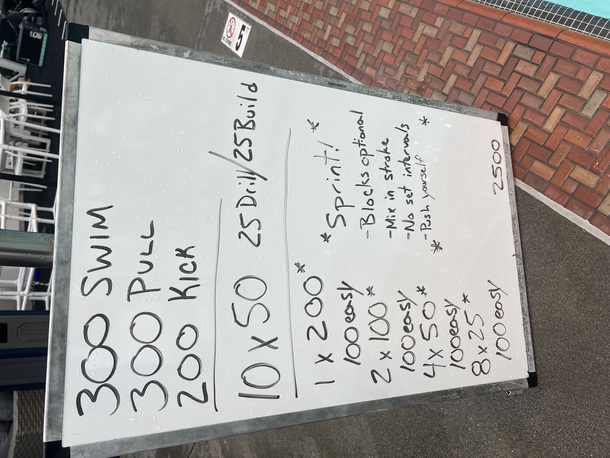 300 SWIM
300 PULL
200 KICK
10 x 50 25 Drill/25 Build
1 x 200*
100 easy
2 x 100*
100 easy
4 x 50*
100 easy
8 x 25*
100 easy
*Sprint!*
-Blocks optional
-Mix in stroke
-No set intervals
-Push yourself
* *
2500
5